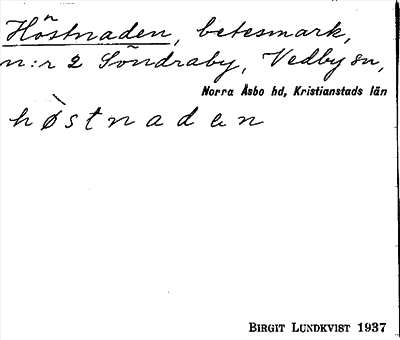 Höstnaden, betesmark,
n:r 2 Söndraby, Vedby sn,
Norra Åsbo hd, Kristianstads län
hø̀stnaden
BIRGIT LUNDKVIST 1937